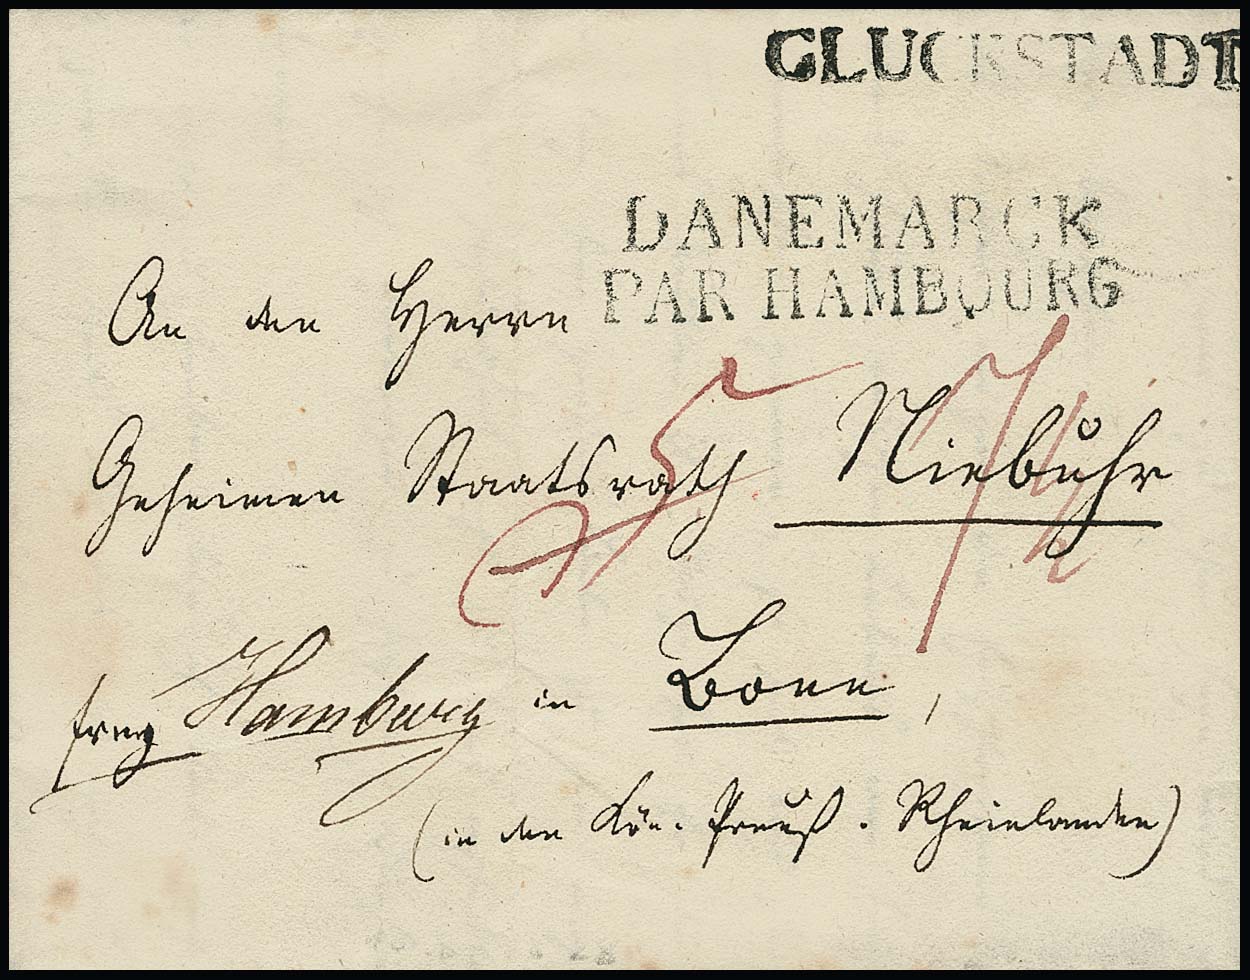 GLUCKSTADT
DANEMARCK
PAR HAMBOURG
An den Herrn
Geheimen Staatsrath Niebuhr
5 7½
frey Hamburg in Bonn,
(in den Kön. Preuß. Rheinlanden)